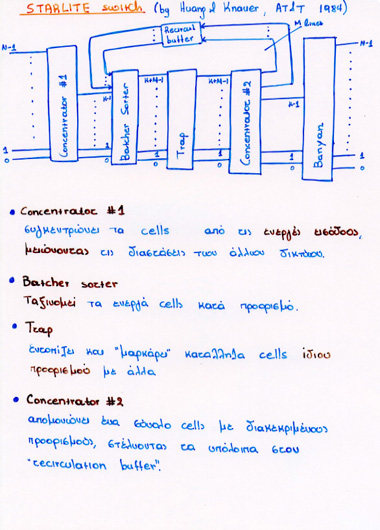 STARLITE switch (by Huang & Knauer, AT&T 1984)
Recircul.
buffer
M lines
N-1
1
0
Concentrator #1
K-1
1
0
Batcher Sorter
K+M-1
1
0
Trap
K+M-1
1
0
Concentrator #2
K-1
1
0
Banyan
N-1
1
0
• Concentrator #1
συγκεντρώνει τα cells από τις ενεργές εισόδους,
μειώνοντας τις διαστάσεις των άλλων δικτύων.
• Batcher sorter
Ταξινομεί τα ενεργά cells κατά προορισμό.
• Trap
εντοπίζει και "μαρκάρει" κατάλληλα cells ίδιου
προορισμού με άλλα
• Concentrator #2
απομονώνει ένα σύνολο cells με διακεκριμένους
προορισμούς, στέλνοντας τα υπόλοιπα στον
"recirculation buffer".